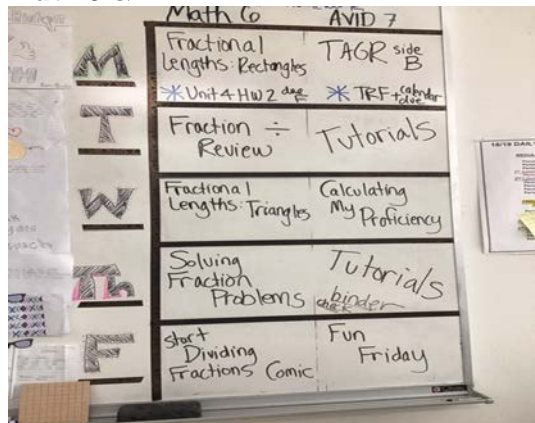 Math 6 AVID 7
M
Fractional
Lengths: Rectangles
* Unit 4 HW 2 due F
TAGR side B
* TRF + calendar due
T
Fraction ÷
Review
Tutorials
W
Fractional
Lengths: Triangles
Calculating
My Proficiency
Th
Solving
Fraction
Problems
Tutorials
binder
check
F
start
Dividing
Fractions Comic
Fun
Friday